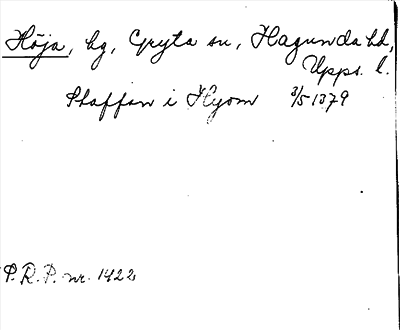 Höja, bg, Gryta sn, Hagunda hd,
Upps. l.
Staffan i Hyom 3/5 1379
P.R.P. nr. 1422